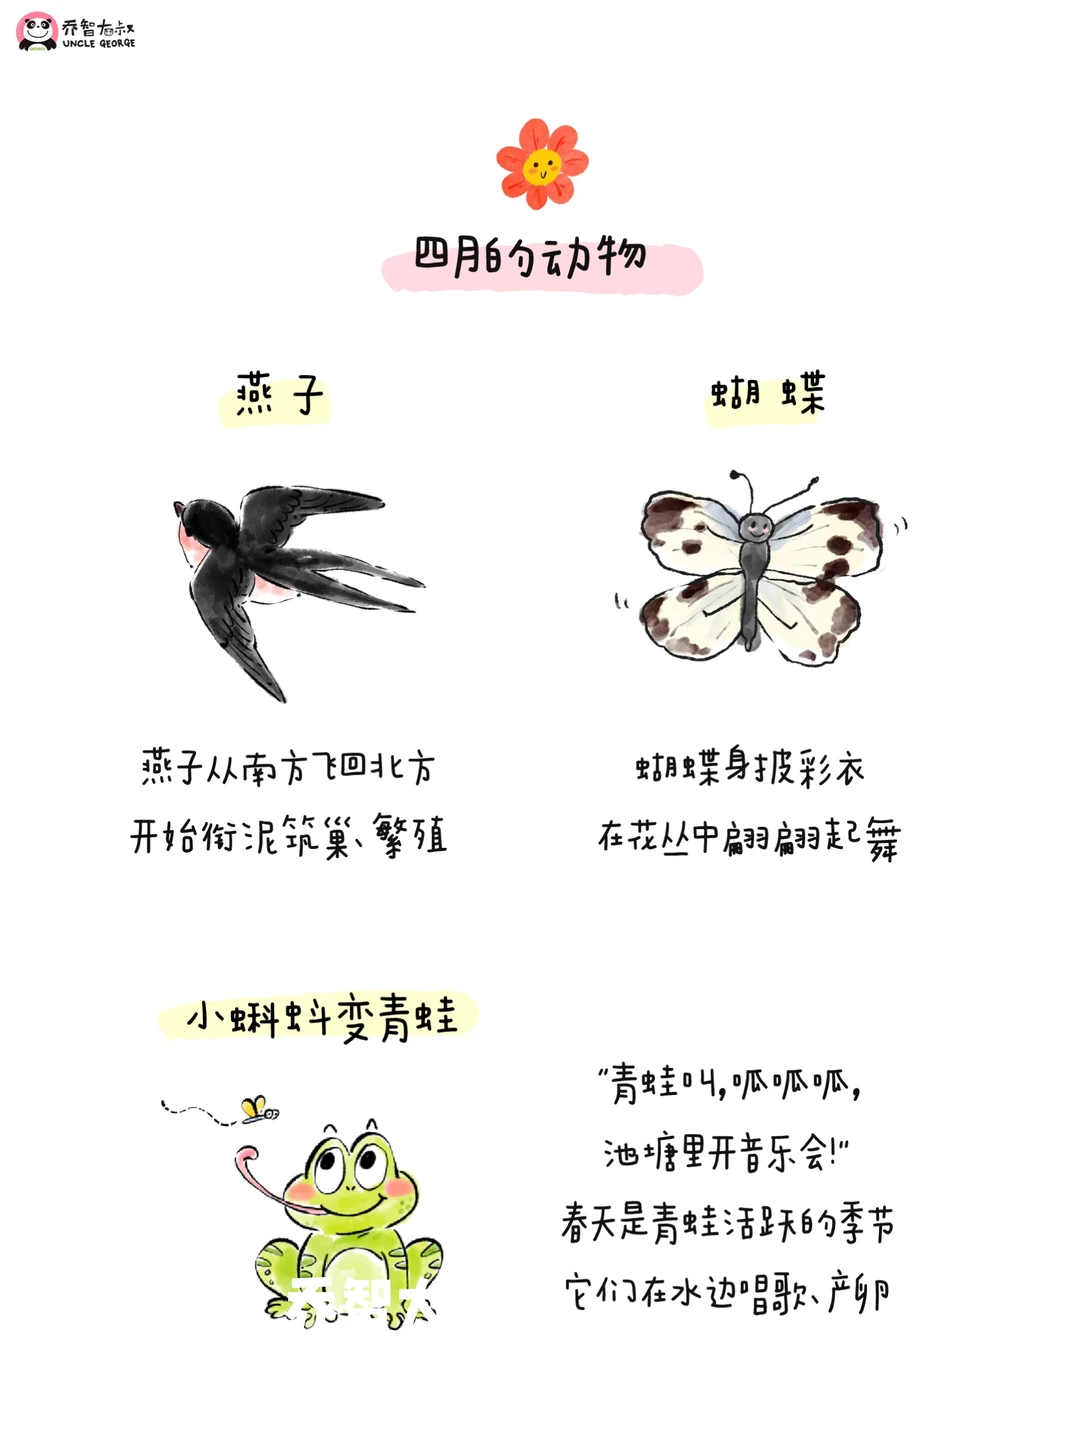 乔智大叔
UNCLE GEORGE
四月的动物
燕子
燕子从南方飞回北方
开始衔泥筑巢、繁殖
蝴蝶
蝴蝶身披彩衣
在花丛中翩翩起舞
小蝌蚪变青蛙
"青蛙叫,呱呱呱,
池塘里开音乐会!"
春天是青蛙活跃的季节
它们在水边唱歌、产卵
乔智大